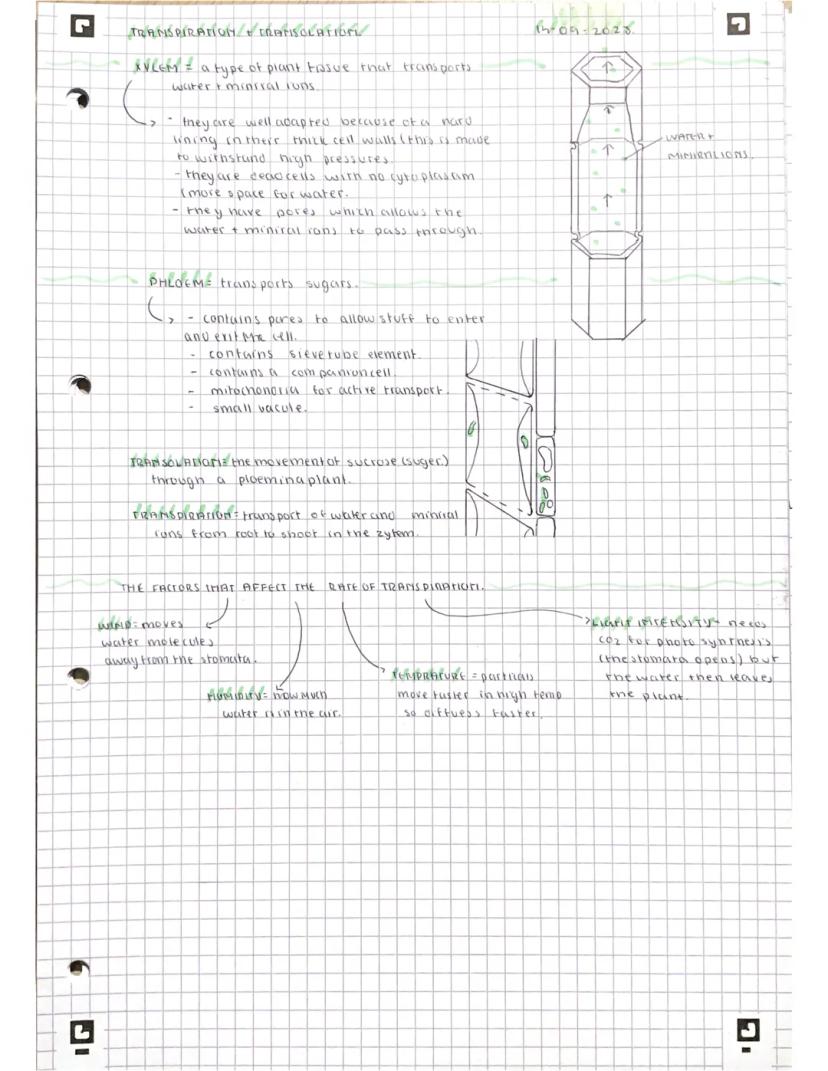 TRANSPIRATION + TRANSOLATION
XYLEM = a type of plant tissue that transports
water + miniral ions.
- they are well adapted because of a hard
lining in their thick cell walls (this is made
to withstand high pressures.
- they are dead cells with no cytoplasam
(more space for water.
- they have pores which allows the
water + miniral ions to pass through.
WATER +
MINIRALIONS.
PHLOEM = transports sugars.
- contains pores to allow stuff to enter
and exit the cell.
- contains sieve tube element.
- contains a companion cell.
- mitochondria for active transport.
- small vacule.
TRANSOLATION = the movement of sucrose (suger)
through a ploem in a plant.
TRANSPIRATION = transport of water and miniral
ions from root to shoot in the zylem.
THE FACTORS THAT AFFECT THE RATE OF TRANSPIRATION.
WIND = moves
water molecules
away from the stomata.
HUMIDITY = how much
water is in the air.
TEMPRATURE = particals
move faster in high temp
so diffuess faster.
LIGHT INTENSITY = needs
CO2 for photosynthesis
(the stomata opens) but
the water then leaves
the plant.